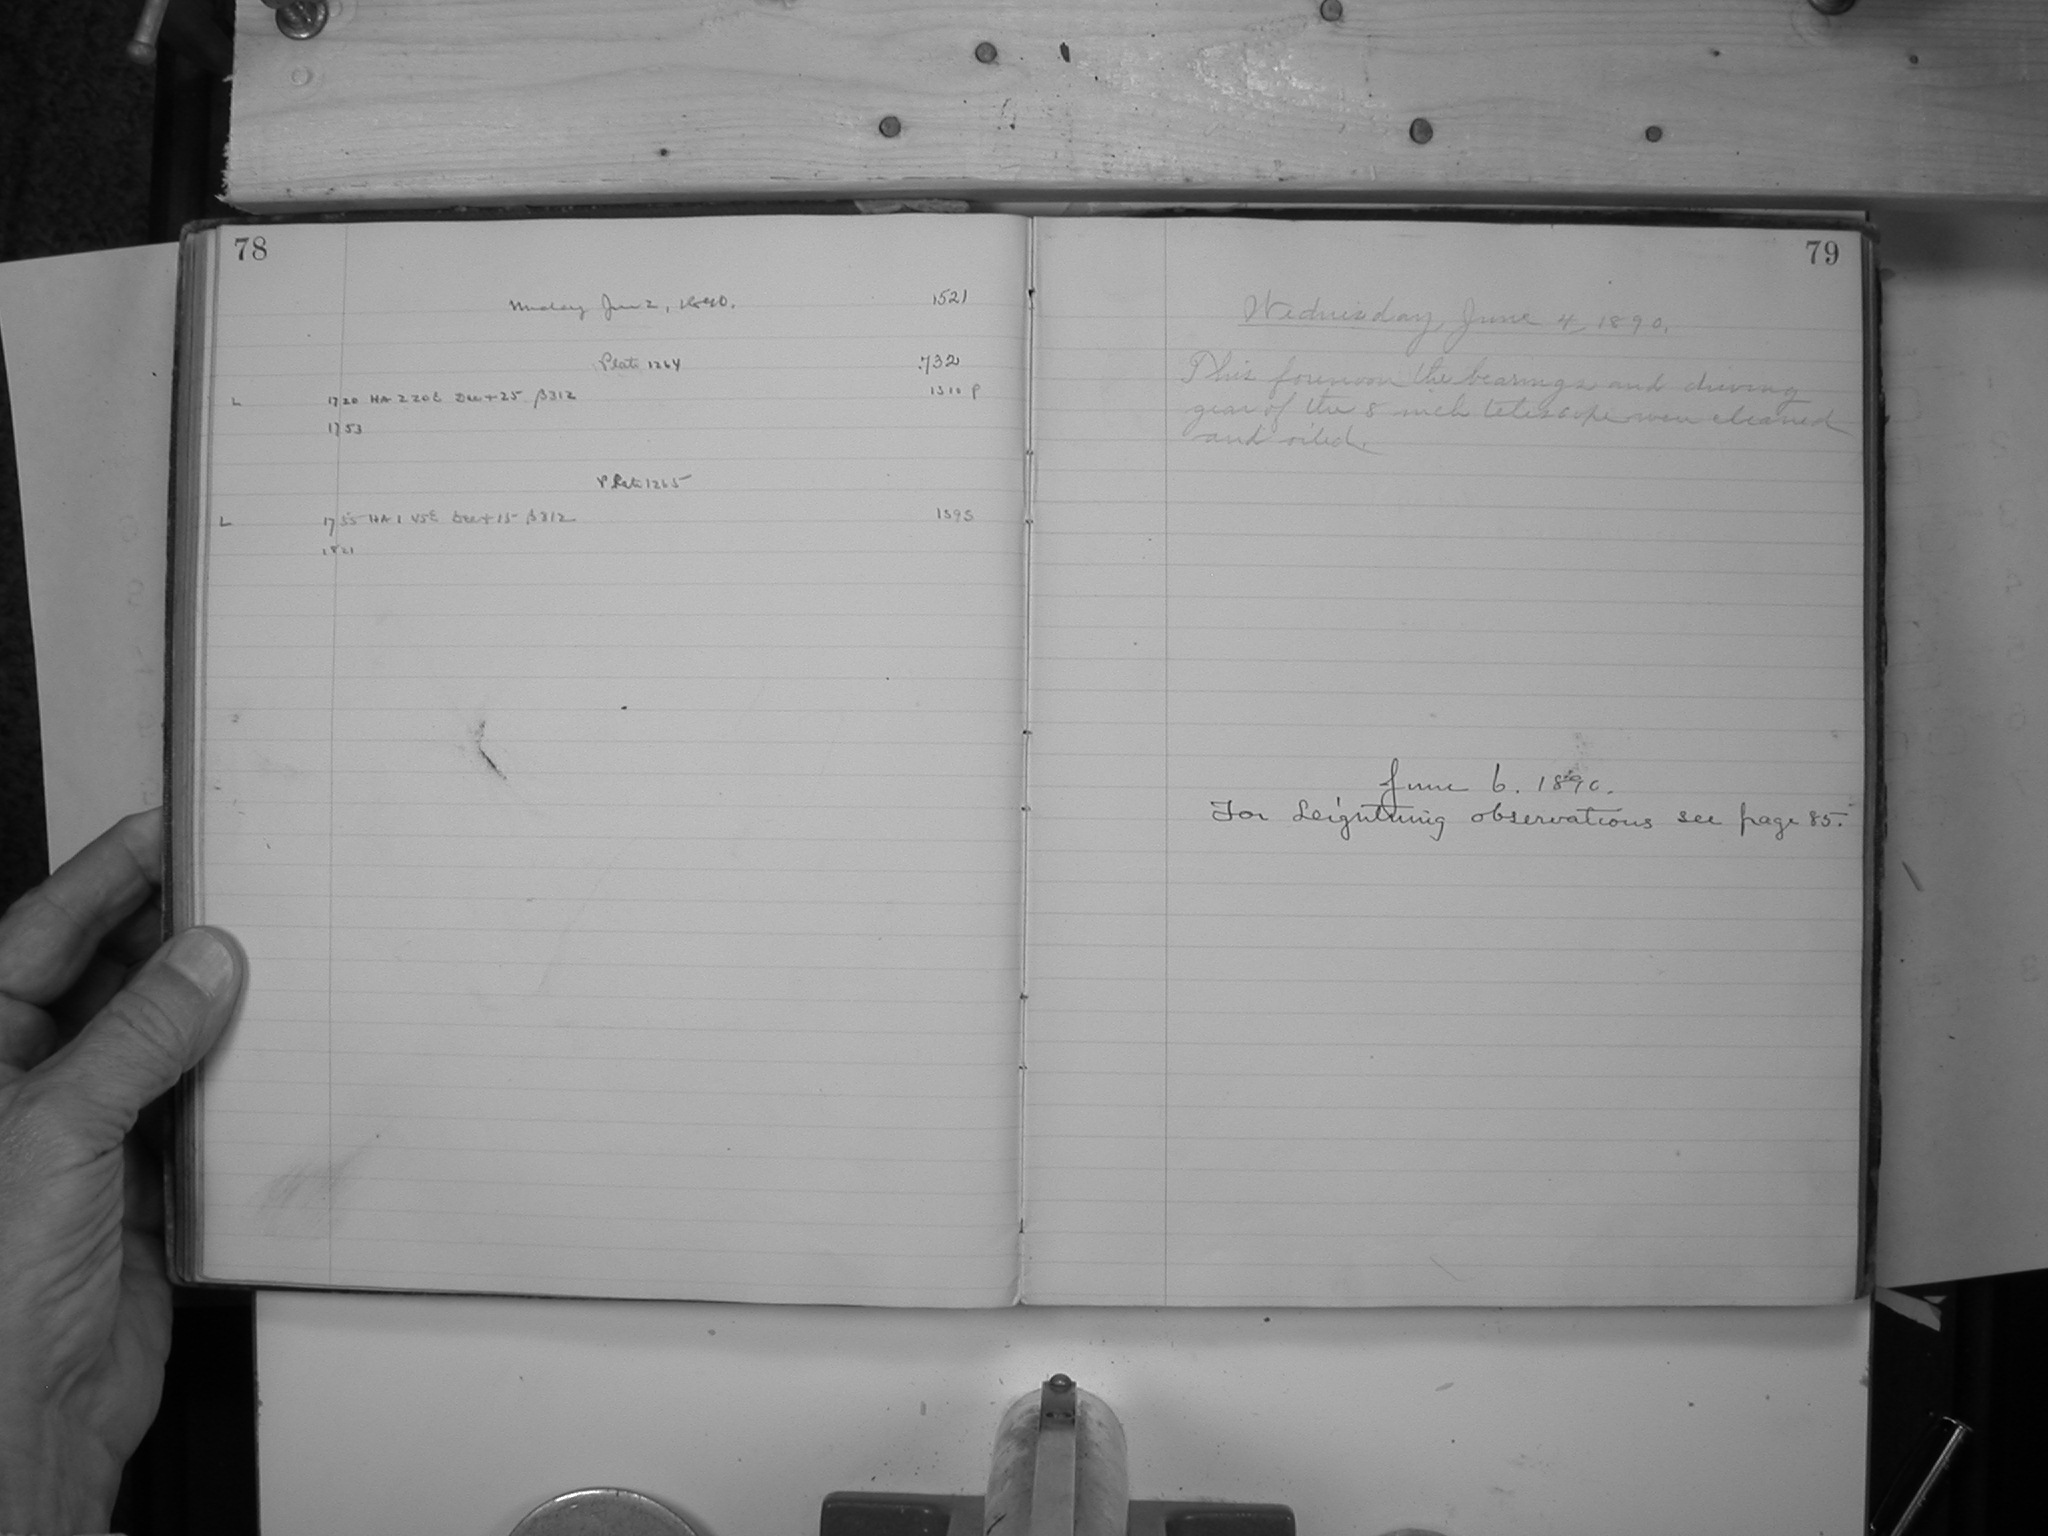 78
Monday June 2, 1890. 1521
Plate 1264 .732
L 1720 HA 2 20E Dec+25 β312 1310 P
1753
Plate 1265
L 1755 HA 1 45E Dec+15 β312 1595
1821
79
Wednesday, June 4, 1890.
This forenoon the bearings and driving
gear of the 8 inch telescope were cleaned
and oiled.
June 6. 1890.
For Leightning observations see page 85.